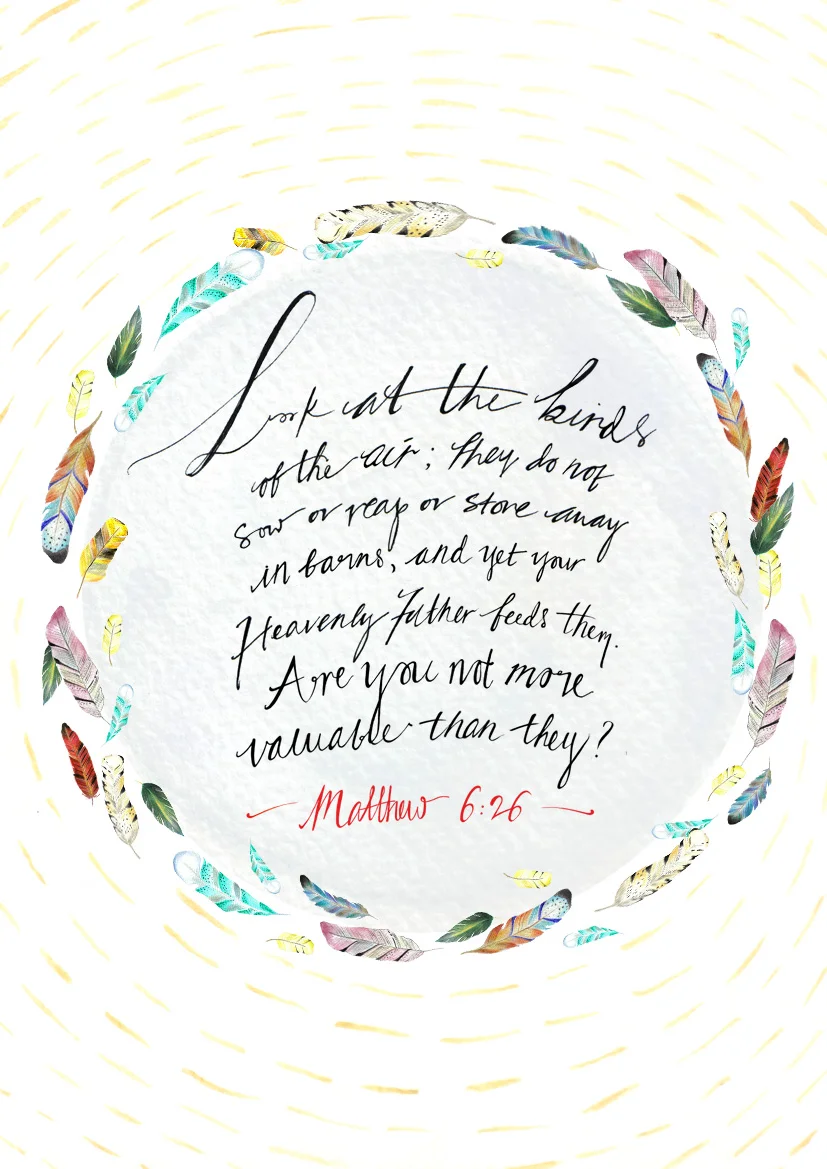 Look at the birds
of the air; they do not
sow or reap or store away
in barns, and yet your
Heavenly Father feeds them.
Are you not more
valuable than they?
— Matthew 6:26 —